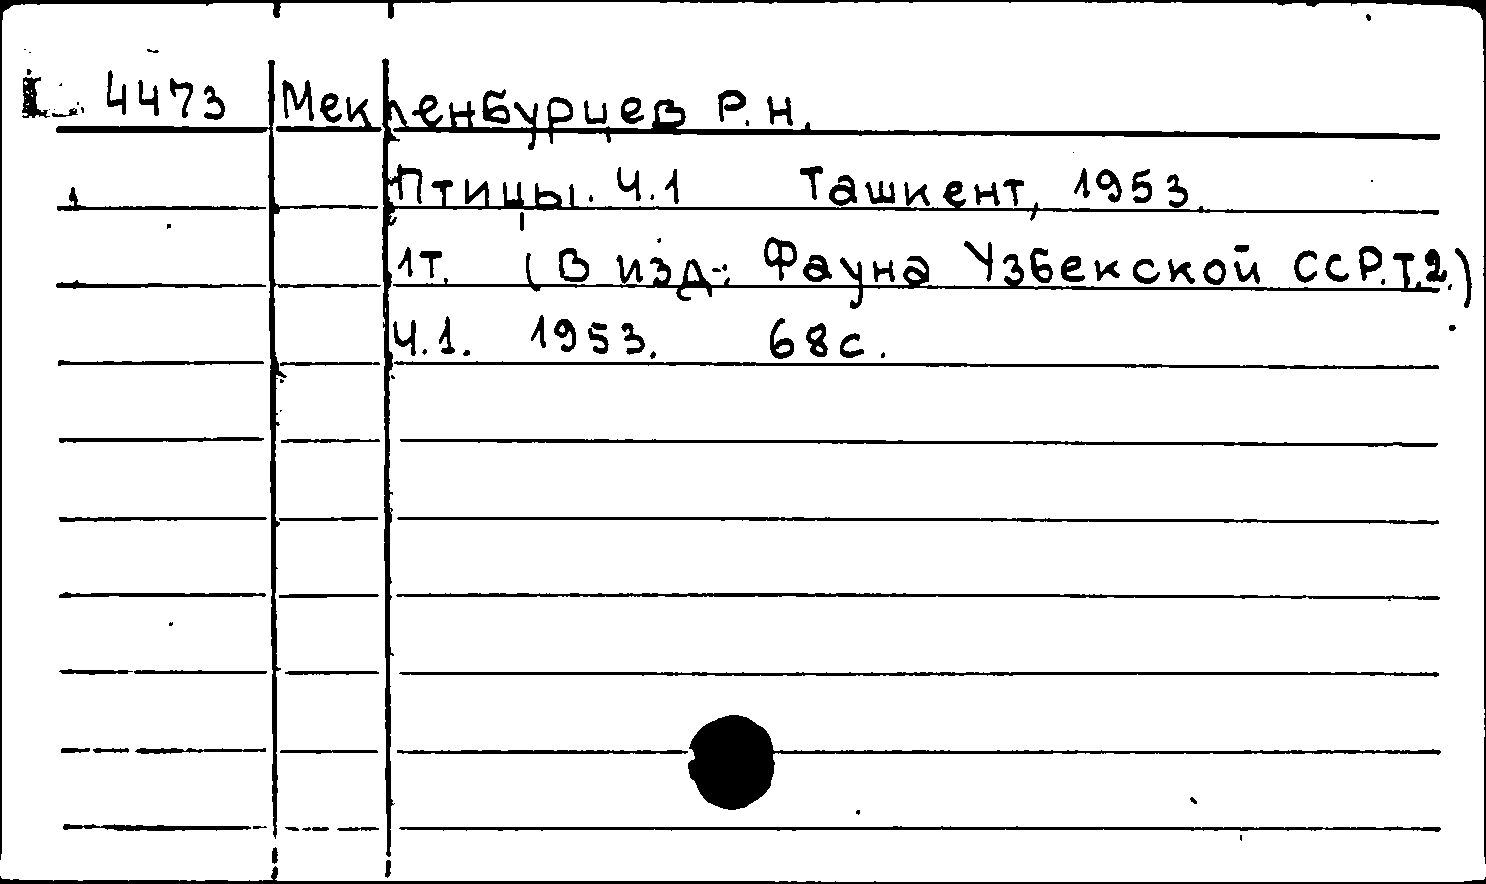 4473 Мекленбурцев Р.Н.
1 Птицы. Ч.1 Ташкент, 1953.
1т. (В изд.: Фауна Узбекской ССР.Т.2.)
Ч.1. 1953. 68с.